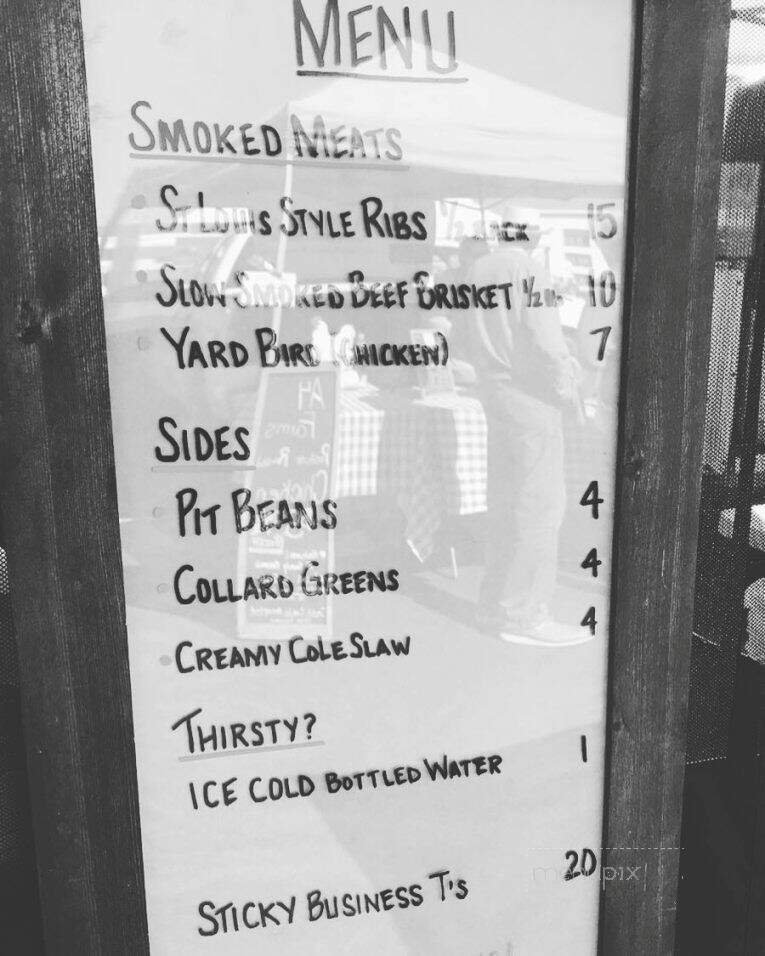 MENU
SMOKED MEATS
ST LOUIS STYLE RIBS 1/2 RACK 15
SLOW SMOKED BEEF BRISKET 1/2 lb 10
YARD BIRD (CHICKEN) 7
SIDES
PIT BEANS 4
COLLARD GREENS 4
CREAMY COLE SLAW 4
THIRSTY?
ICE COLD BOTTLED WATER 1
STICKY BUSINESS T's 20
menupix